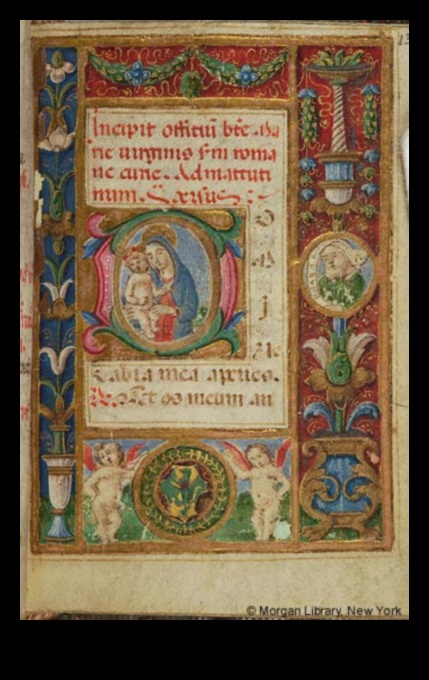 Incipit offitiu bte Ma
rie virginis sm roma
ne curie. Ad matuti
num. Versus
D
M
I
Labia mea apries.
Et os meum an
© Morgan Library, New York